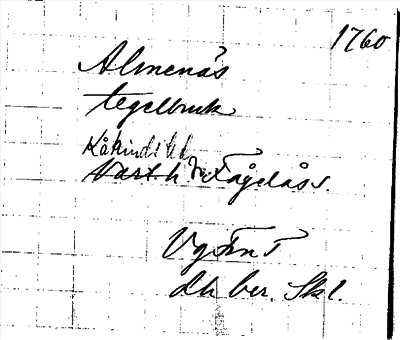 1760
Almenäs
tegelbruk
Kåkinds hd
Vart. h Fågelås s.
Vg Fm T
dh ber. Sk 1.